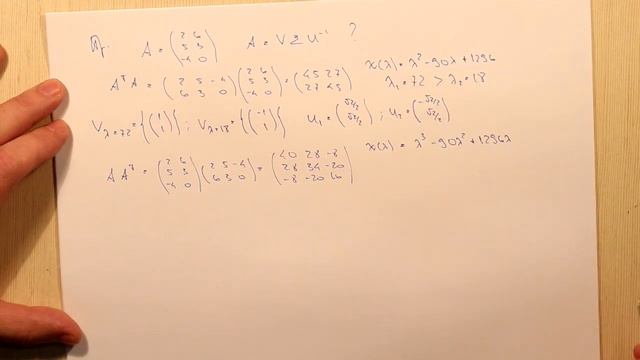 Př. A = (2 6; 5 3; -4 0) A = V Σ U⁻¹ ?
AᵀA = (2 5 -4; 6 3 0)(2 6; 5 3; -4 0) = (45 27; 27 45) χ(λ) = λ² - 90λ + 1296
λ₁ = 72 > λ₂ = 18
V_λ=72 = {(1; 1)} ; V_λ=18 = {(-1; 1)} u₁ = (√2/2; √2/2) ; u₂ = (-√2/2; √2/2)
AAᵀ = (2 6; 5 3; -4 0)(2 5 -4; 6 3 0) = (40 28 -8; 28 34 -20; -8 -20 16) χ(λ) = λ³ - 90λ² + 1296λ